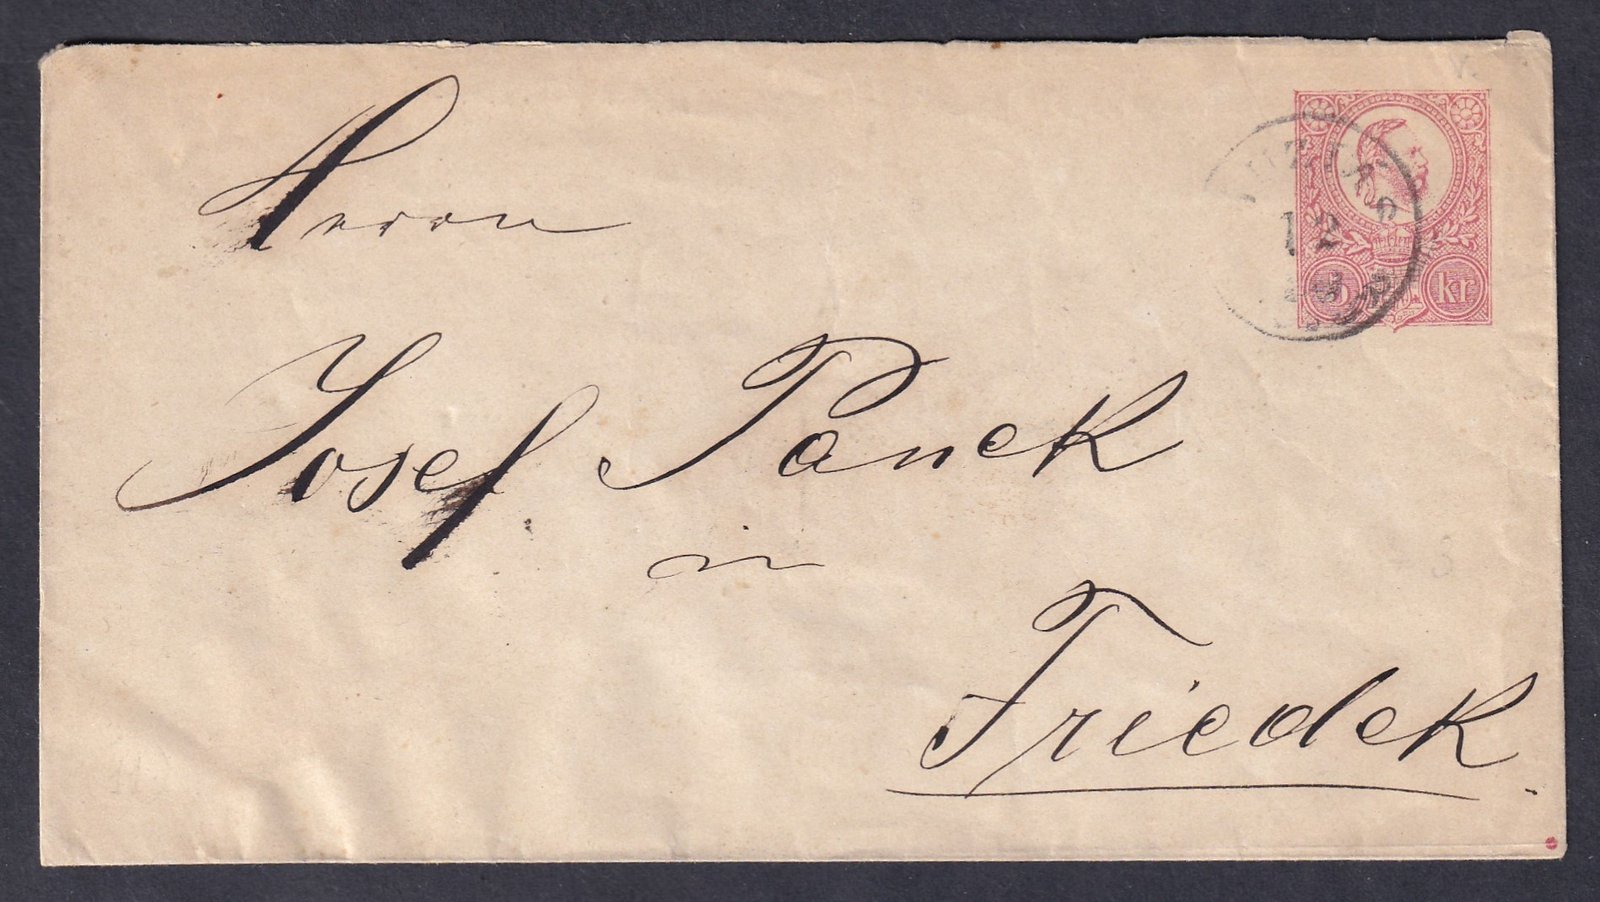 Herrn
Josef Panek
in
Friedek.
12
5 kr